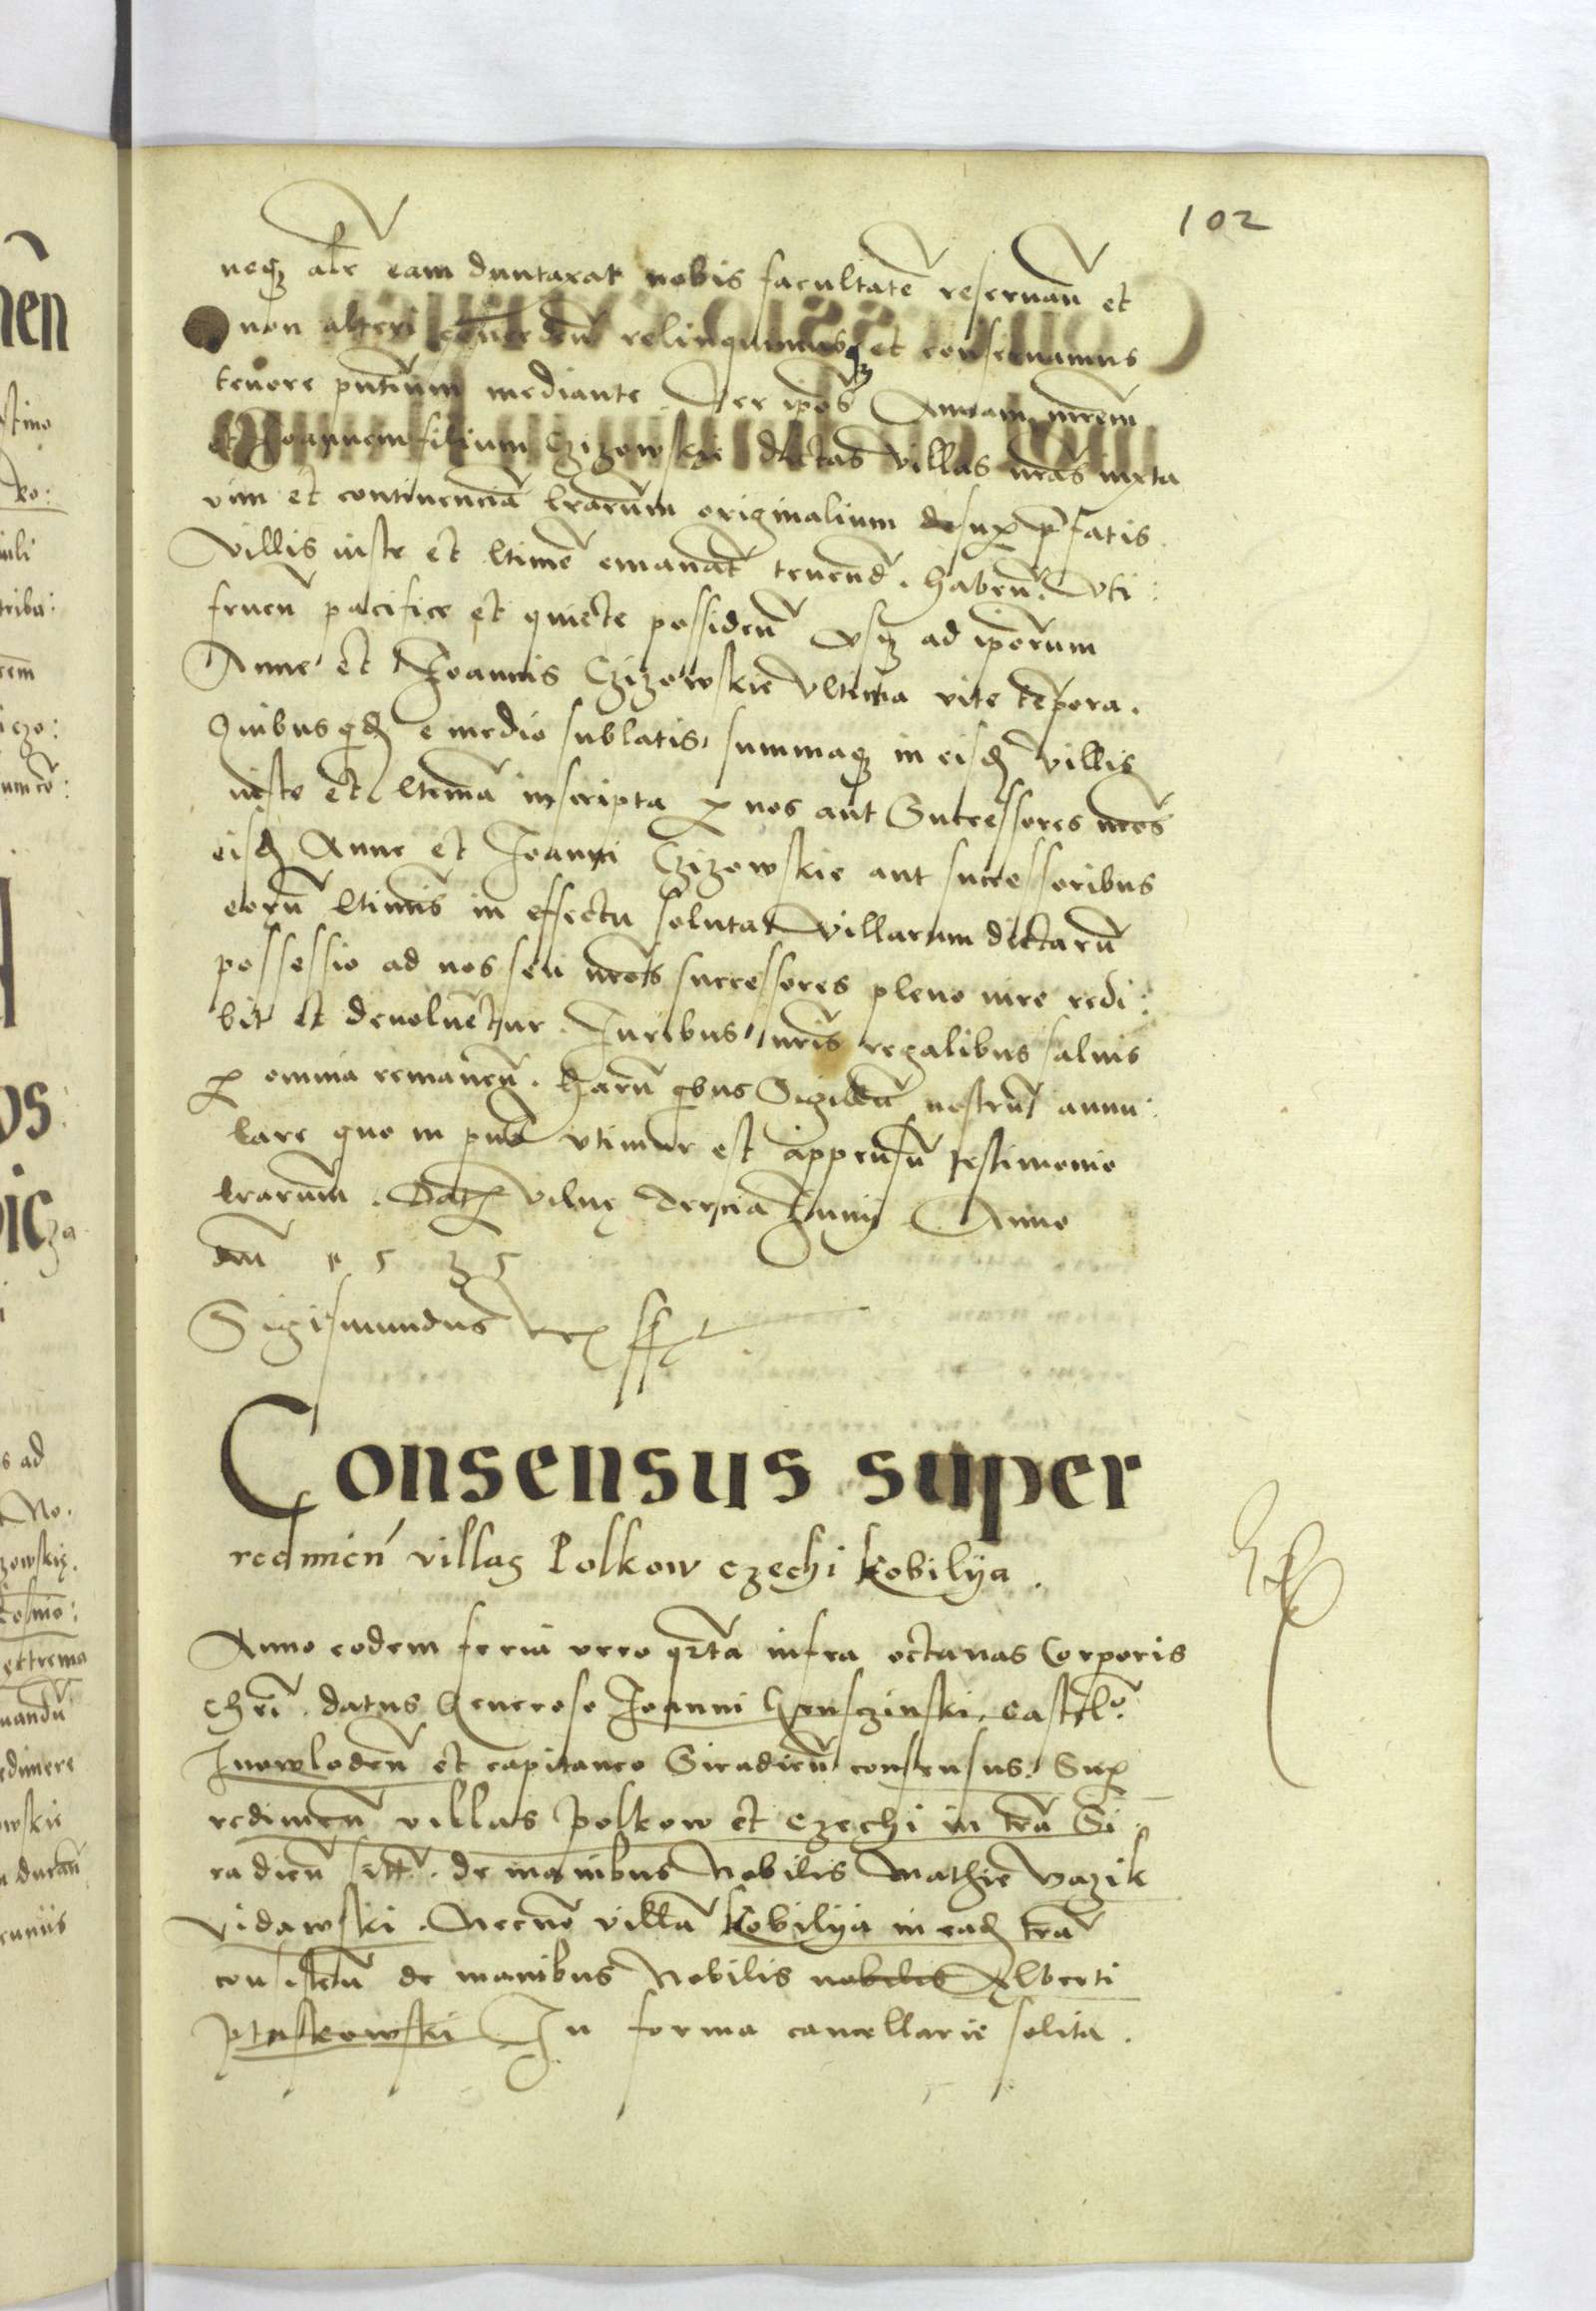 102
neqꝫ alr̄ eam duntaxat nobis facultatē reseruan̄ et
non alteri conceden̄ relinquimusqꝫ et conseruamus
tenore pn̄tium mediante. Per ip̄os Annam mr̄em
et Joannem filium Czizowskie dictas villas nr̄as iuxta
vim et continenciā lr̄arum originalium desuꝑ p̄fatis
Villis iuste et ltimē emanat̄ tenend̄. habēn̄. vti:
fruen̄ pacifice et quiete possiden̄ vsqꝫ ad ip̄orum
Anne et Joannis Czizowskie vltima vite tēpora.
Quibus qd̄ e medio sublatis, summaqꝫ in eisd̄ villis
iuste et ltimē inscripta ꝑ nos aut Successores nr̄os
eisd̄ Anne et Joanni Czizowskie aut successoribus
eorū ltimis in effectu soluta Villarum dictarū
possessio ad nos seu nr̄os successores pleno iure redi:
bit et deuoluetur. Juribus nr̄is regalibus saluis
ꝑ omnia remanen̄. Harū qbus Sigillū nostrū annu:
lare quo in pn̄ti vtimur est appensū testimonio
lr̄arum. Datꝭ Vilnę tercia Junij Anno
dn̄i 1535
Sigismundus Rex sſt
Consensus super
redimen̄ villas Polkow czechi kobilya.
Anno eodem feria vero qr̄ta infra octauas Corporis
chr̄i. datus Generoso Joanni castel̄:
Jnowloden̄ et capitaneo Siradien̄ consensus. Suꝑ
redimen̄ villas polkow et czechi in trā Si:
radien̄ sitt̄. de manibus Nobilis Mathie Vazik
vidawski. Necnō villā kobilya in ead̄ trā
consisten̄ de manibus Nobilis nobilis Alberti
ptaskowski In forma cancellarie solita.